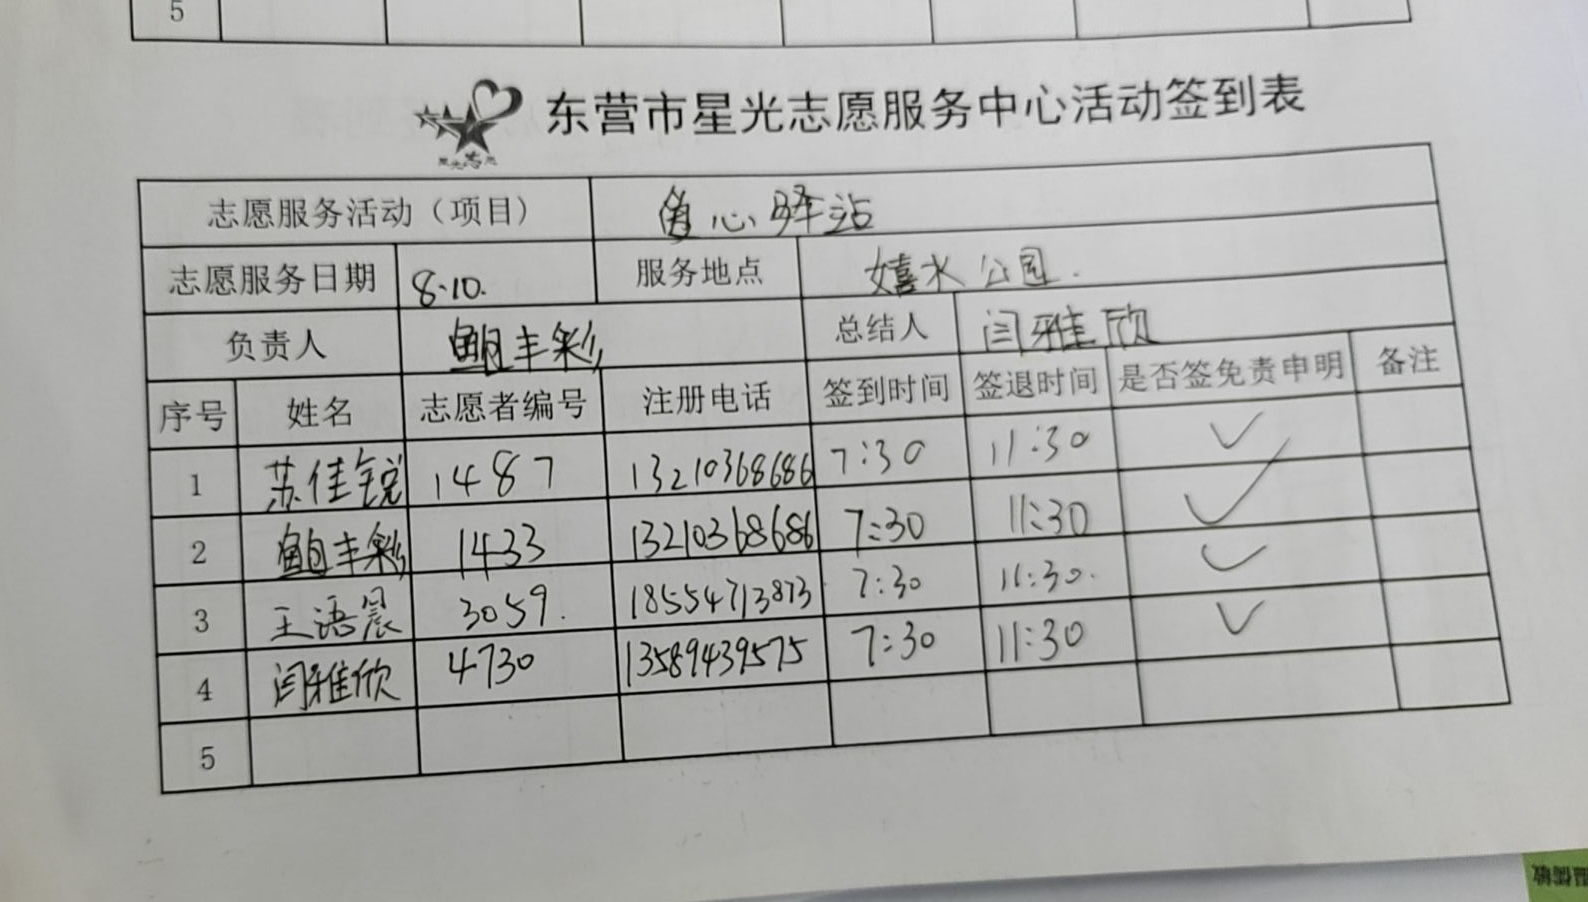 5
东营市星光志愿服务中心活动签到表
星光志愿
志愿服务活动（项目） 心驿站
志愿服务日期 8.10. 服务地点 嬉水公园.
负责人 鲍丰彩 总结人 闫雅欣
序号 姓名 志愿者编号 注册电话 签到时间 签退时间 是否签免责申明 备注
1 苏佳锐 1487 13210368686 7:30 11:30 ✓
2 鲍丰彩 1433 13210368686 7:30 11:30 ✓
3 王语晨 3059. 18554713873 7:30 11:30. ✓
4 闫雅欣 4730 13589439575 7:30 11:30 ✓
5